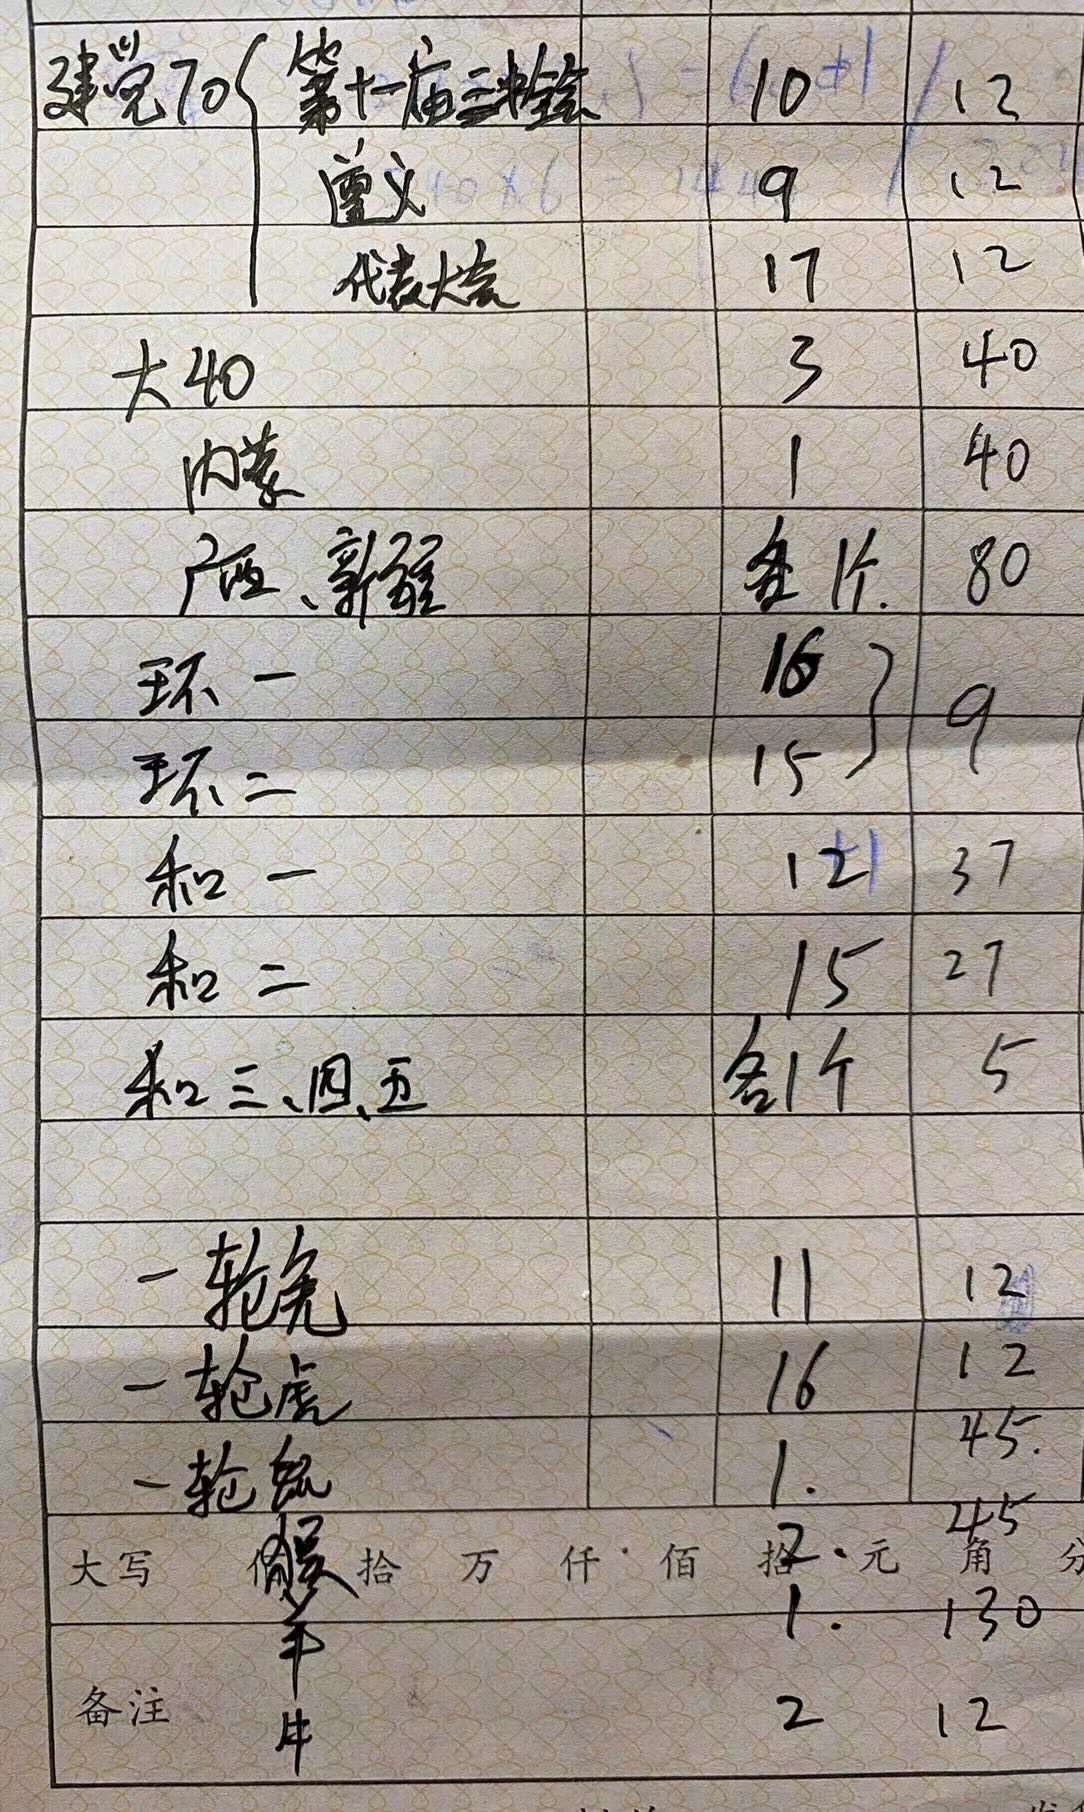 建党70 第十一届三中全会 10 12
遵义 9 12
代表大会 17 12
大40 3 40
内蒙 1 40
广西、新疆 各1个. 80
环一 16 9
环二 15
和一 12 37
和二 15 27
和三、四、五 各1个 5
一轮兔 11 12
一轮虎 16 12
一轮 1. 45.
猴 2. 45
大写 佰 拾 万 仟 佰 拾 元 角 分
羊 1. 130
备注 牛 2 12